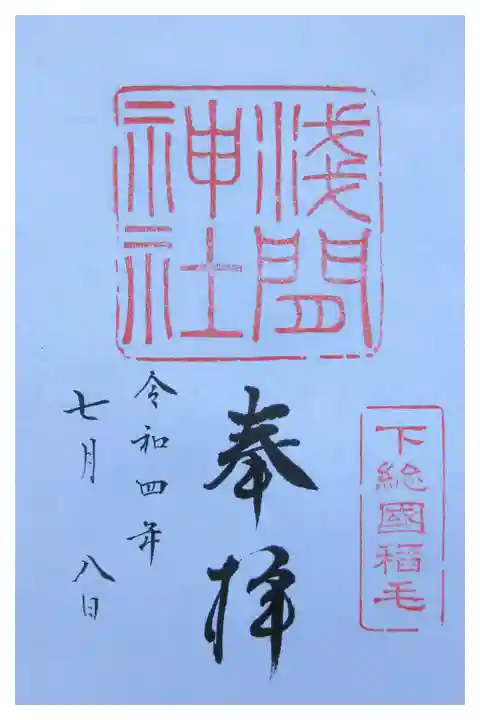 淺間
神社
下総國稲毛
奉拝
令和四年
七月 八日